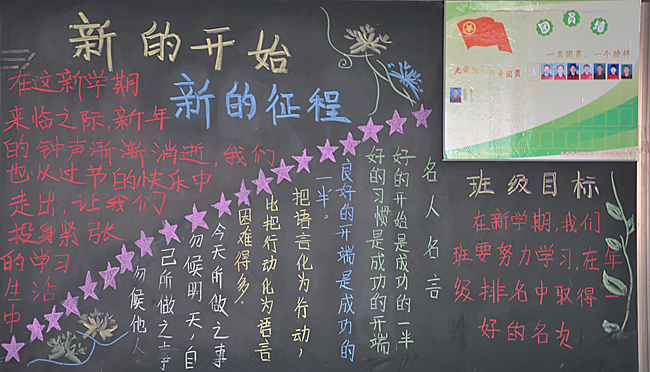 新的开始
新的征程
在这新学期
来临之际,新年
的钟声渐渐消逝,我们
也从过节的快乐中
走出,让我们
投身紧张
的学习
生活
中
名人名言
好的开始是成功的一半
好的习惯是成功的开端
良好的开端是成功的
一半。
把语言化为行动,
比把行动化为语言
困难得多
今天所做之事
勿候明天,自
己所做之事
勿候他人
班级目标
在新学期,我们
班要努力学习,在年
级排名中取得一
好的名次
团员墙
一名团员,一个榜样